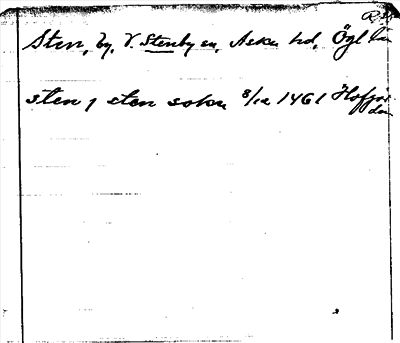 Sten, by, V. Stenby sn, Aska hd, Ögl län
sten j sten sokn 8/12 1461